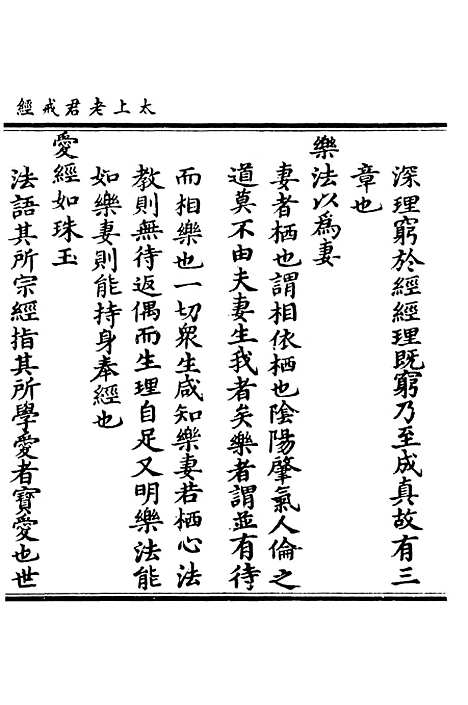 太上老君戒經
深理窮於經經理既窮乃至成真故有三
章也
樂法以為妻
妻者栖也謂相依栖也陰陽肇氣人倫之
道莫不由夫妻生我者矣樂者謂並有待
而相樂也一切衆生咸知樂妻若栖心法
教則無待返偶而生理自足又明樂法能
如樂妻則能持身奉經也
愛經如珠玉
法語其所宗經指其所學愛者寶愛也世